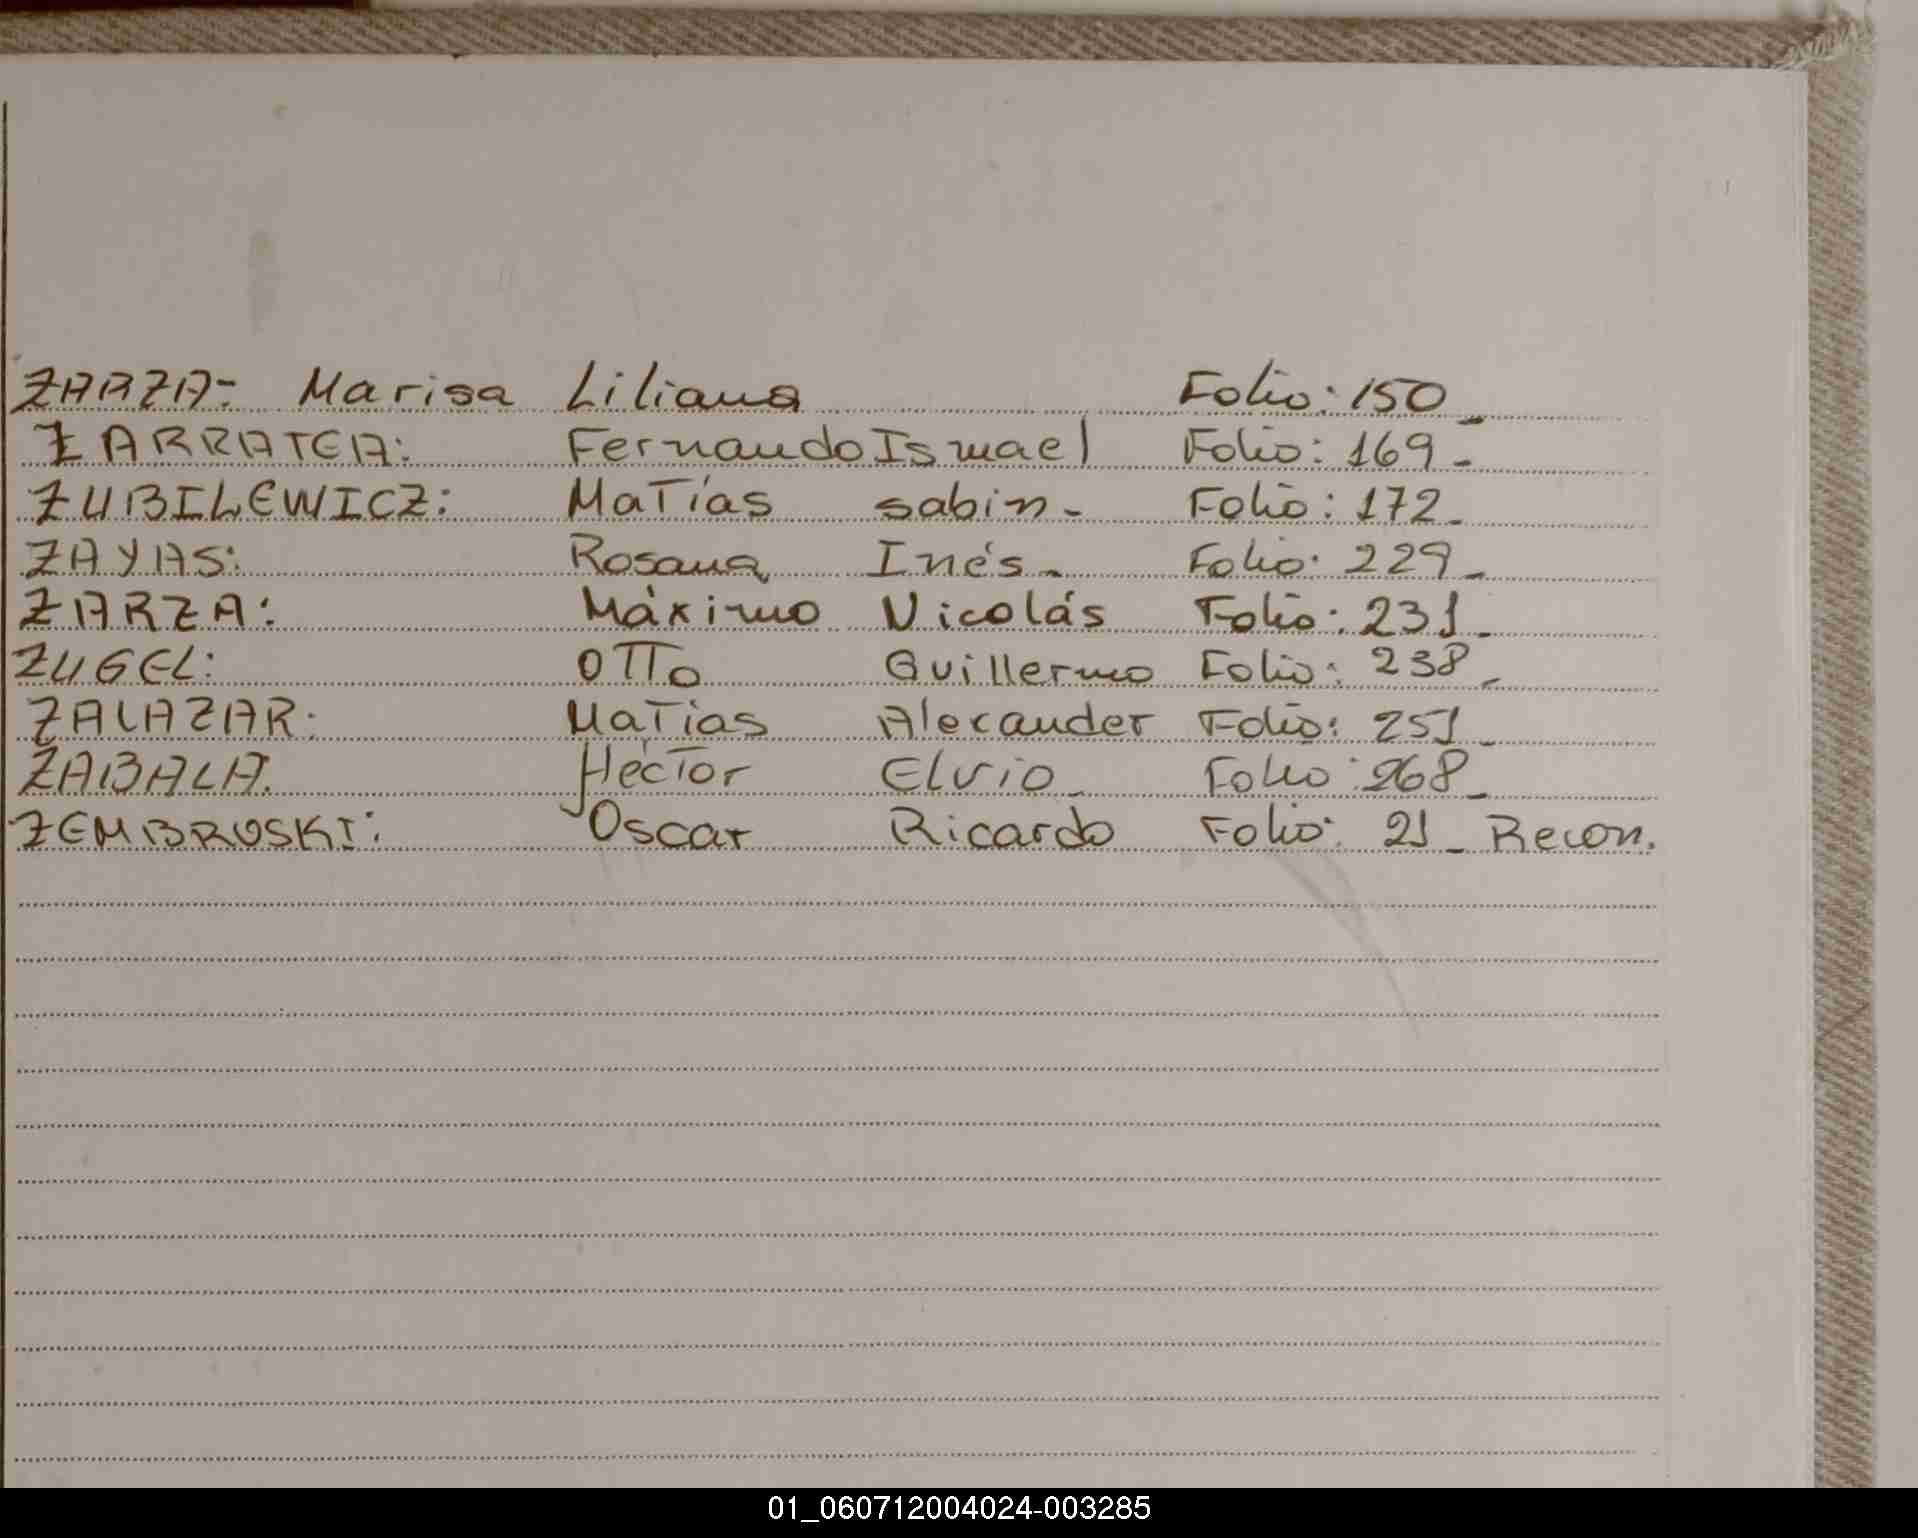 ZARZA: Marisa Liliana Folio: 150_
ZARRATEA: Fernando Ismael Folio: 169_
ZUBILEWICZ: Matías sabin_ Folio: 172_
ZAYAS: Rosana Inés_ Folio: 229_
ZARZA: Máximo Nicolás Folio: 231_
ZUGEL: OTTo Guillermo Folio: 238_
ZALAZAR: Matías Alexander Folio: 251_
ZABALA. Héctor Elvio_ Folio: 268_
ZEMBROSKI: Oscar Ricardo Folio: 21_ Recon.
01_060712004024-003285